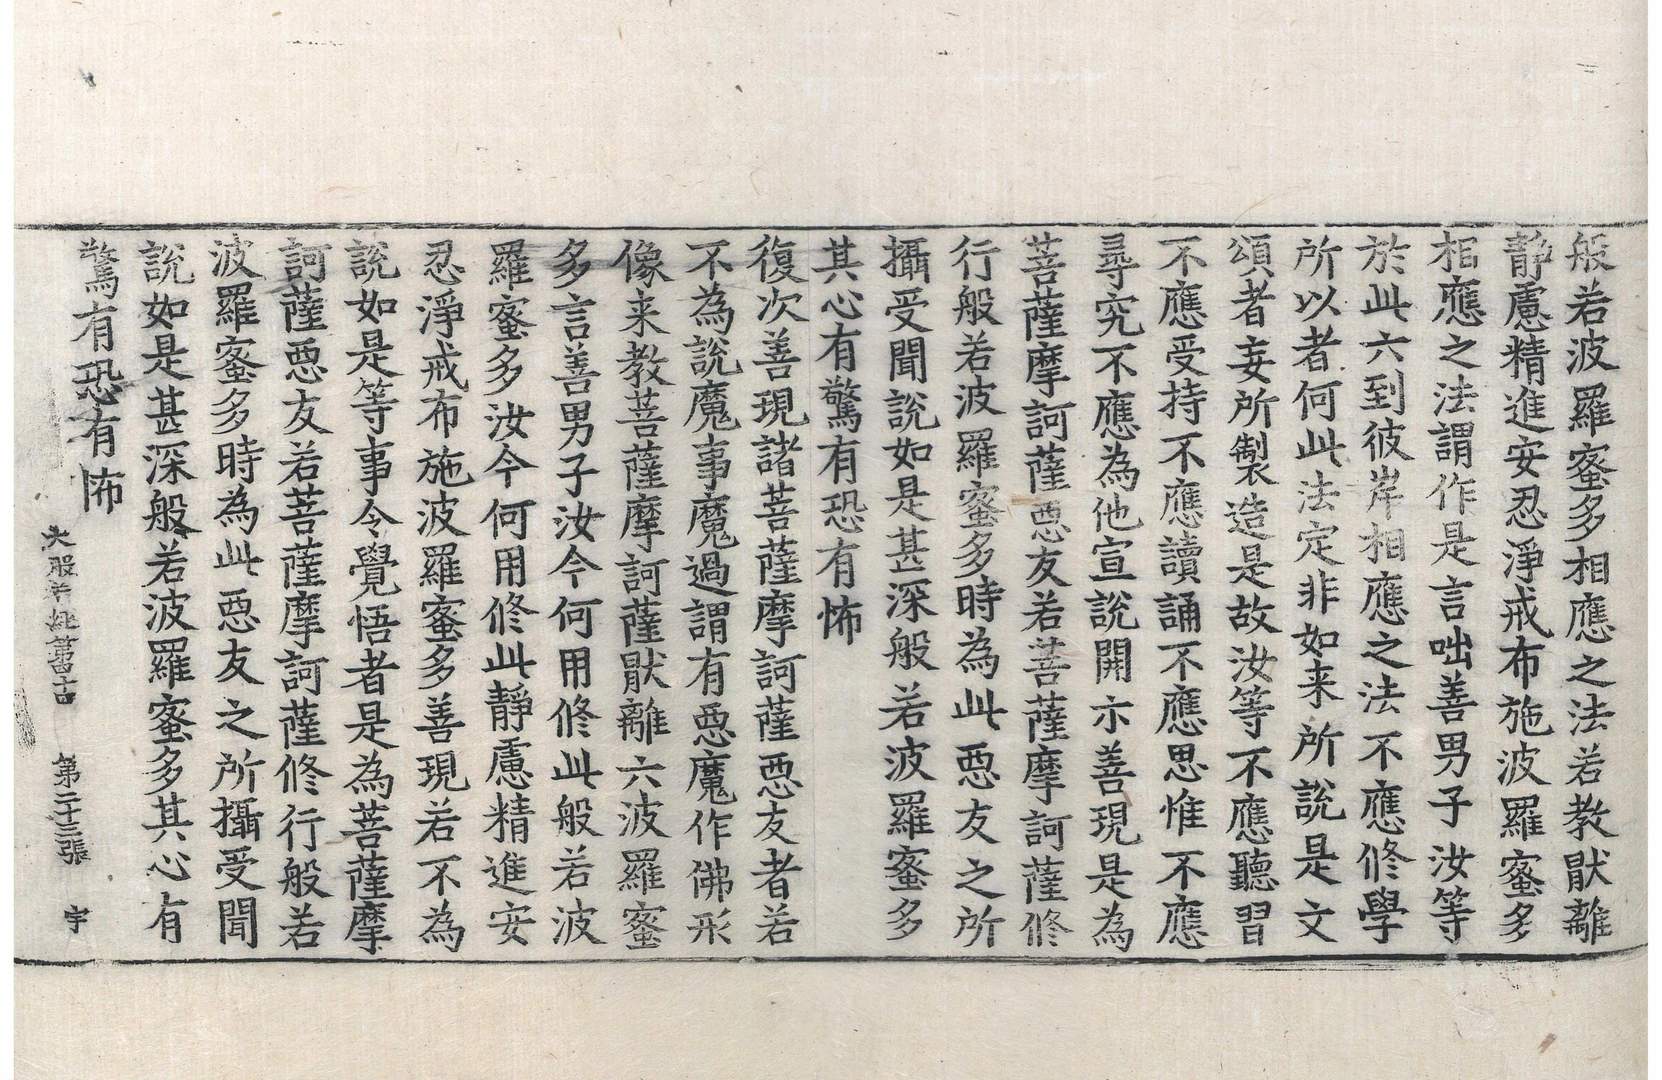 般若波羅蜜多相應之法若教猒離
靜慮精進安忍淨戒布施波羅蜜多
相應之法謂作是言咄善男子汝等
於此六到彼岸相應之法不應修學
所以者何此法定非如来所說是文
頌者妄所製造是故汝等不應聽習
不應受持不應讀誦不應思惟不應
尋究不應為他宣說開示善現是為
菩薩摩訶薩惡友若菩薩摩訶薩修
行般若波羅蜜多時為此惡友之所
攝受聞說如是甚深般若波羅蜜多
其心有驚有恐有怖
復次善現諸菩薩摩訶薩惡友者若
不為說魔事魔過謂有惡魔作佛形
像来教菩薩摩訶薩猒離六波羅蜜
多言善男子汝今何用修此般若波
羅蜜多汝今何用修此靜慮精進安
忍淨戒布施波羅蜜多善現若不為
說如是等事令覺悟者是為菩薩摩
訶薩惡友若菩薩摩訶薩修行般若
波羅蜜多時為此惡友之所攝受聞
說如是甚深般若波羅蜜多其心有
驚有恐有怖
大般若経第 第二十三張 宇